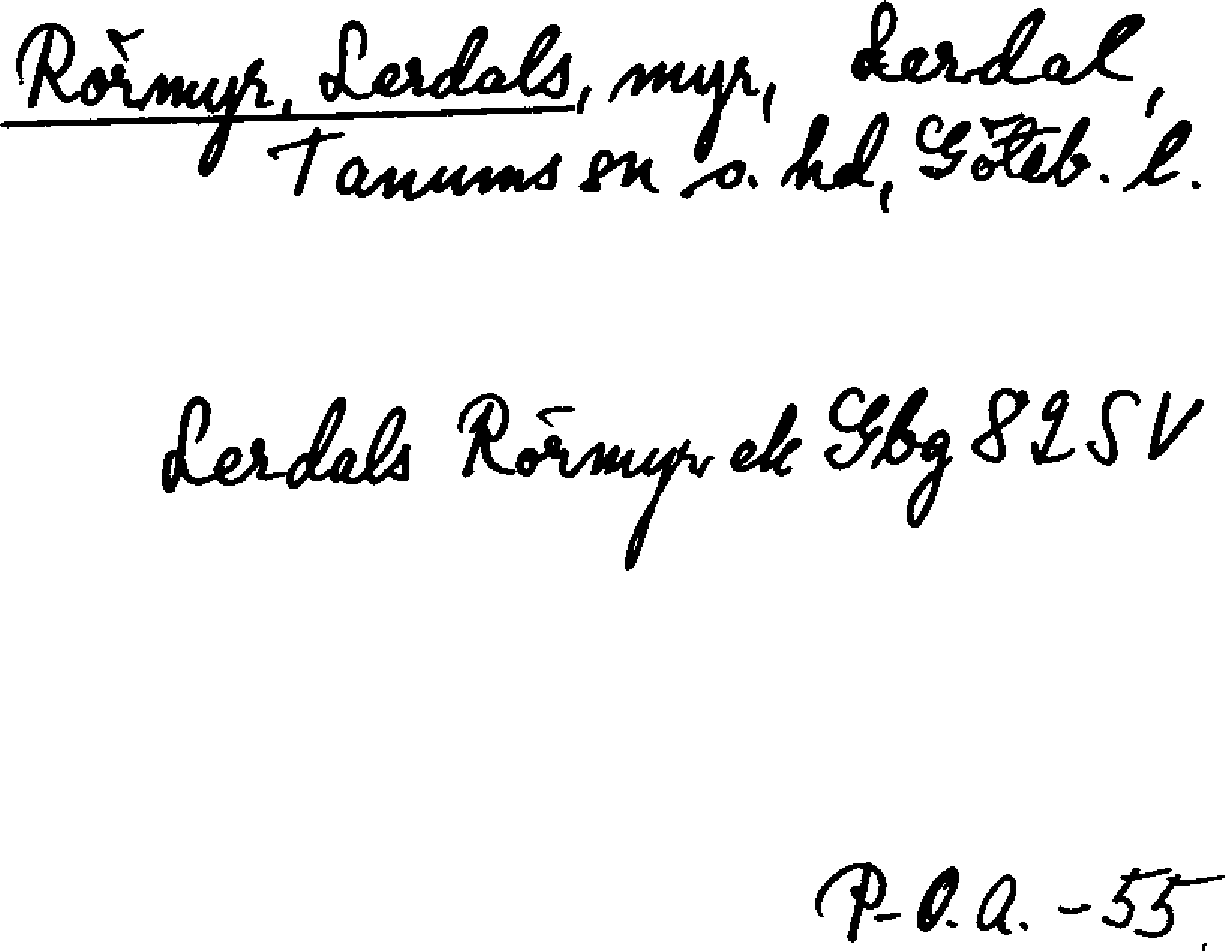 Rörmyr, Lerdals, myr, Lerdal,
Tanums sn o. hd, Göteb. l.
Lerdals Rörmyr ek Gbg 82 SV
P-O.A. -55